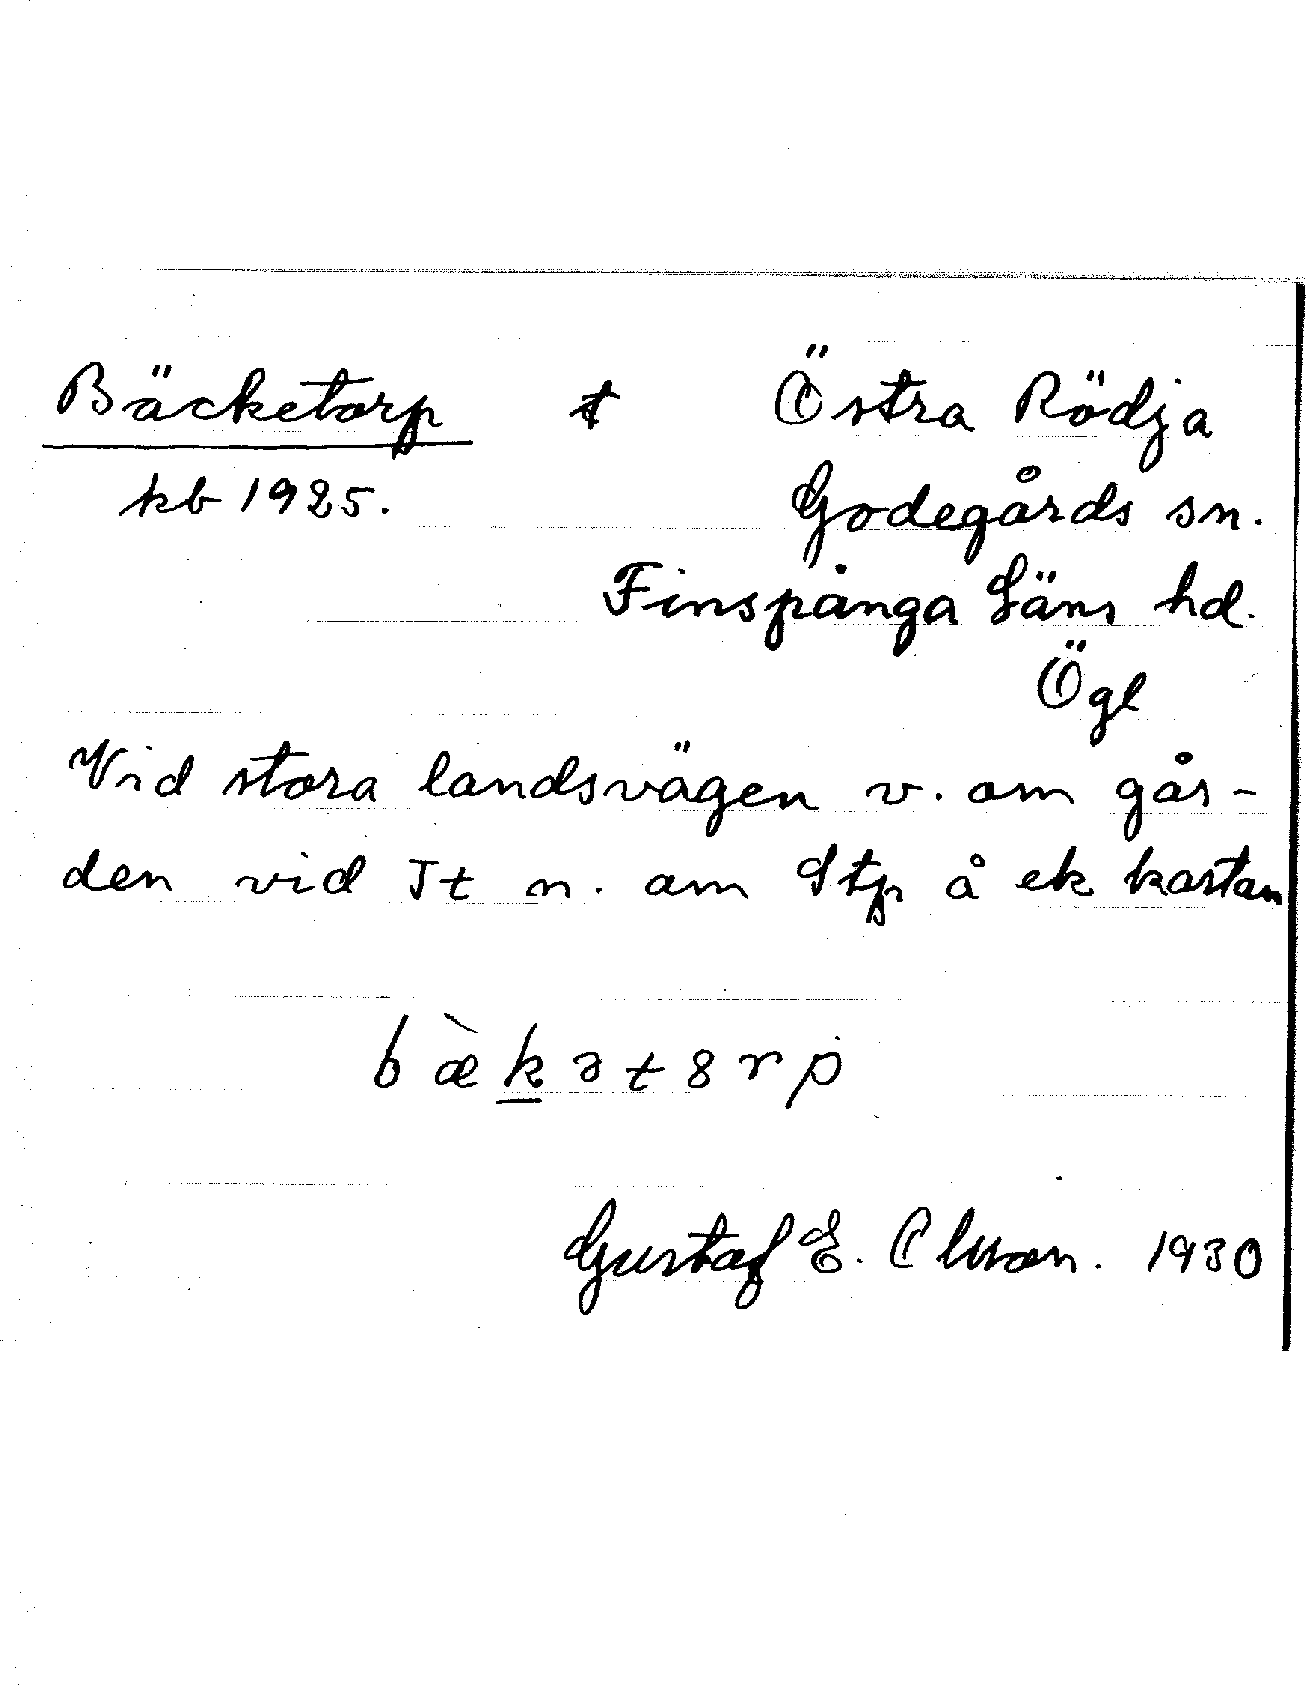 Bäcketorp t Östra Rödja
kb 1925. Godegårds sn.
Finspånga Läns hd.
Ögl
Vid stora landsvägen v. om går-
den vid Jt n. om Stp å ek kartan
bæ̀kətȣrp
Gustaf E. Olsson. 1930